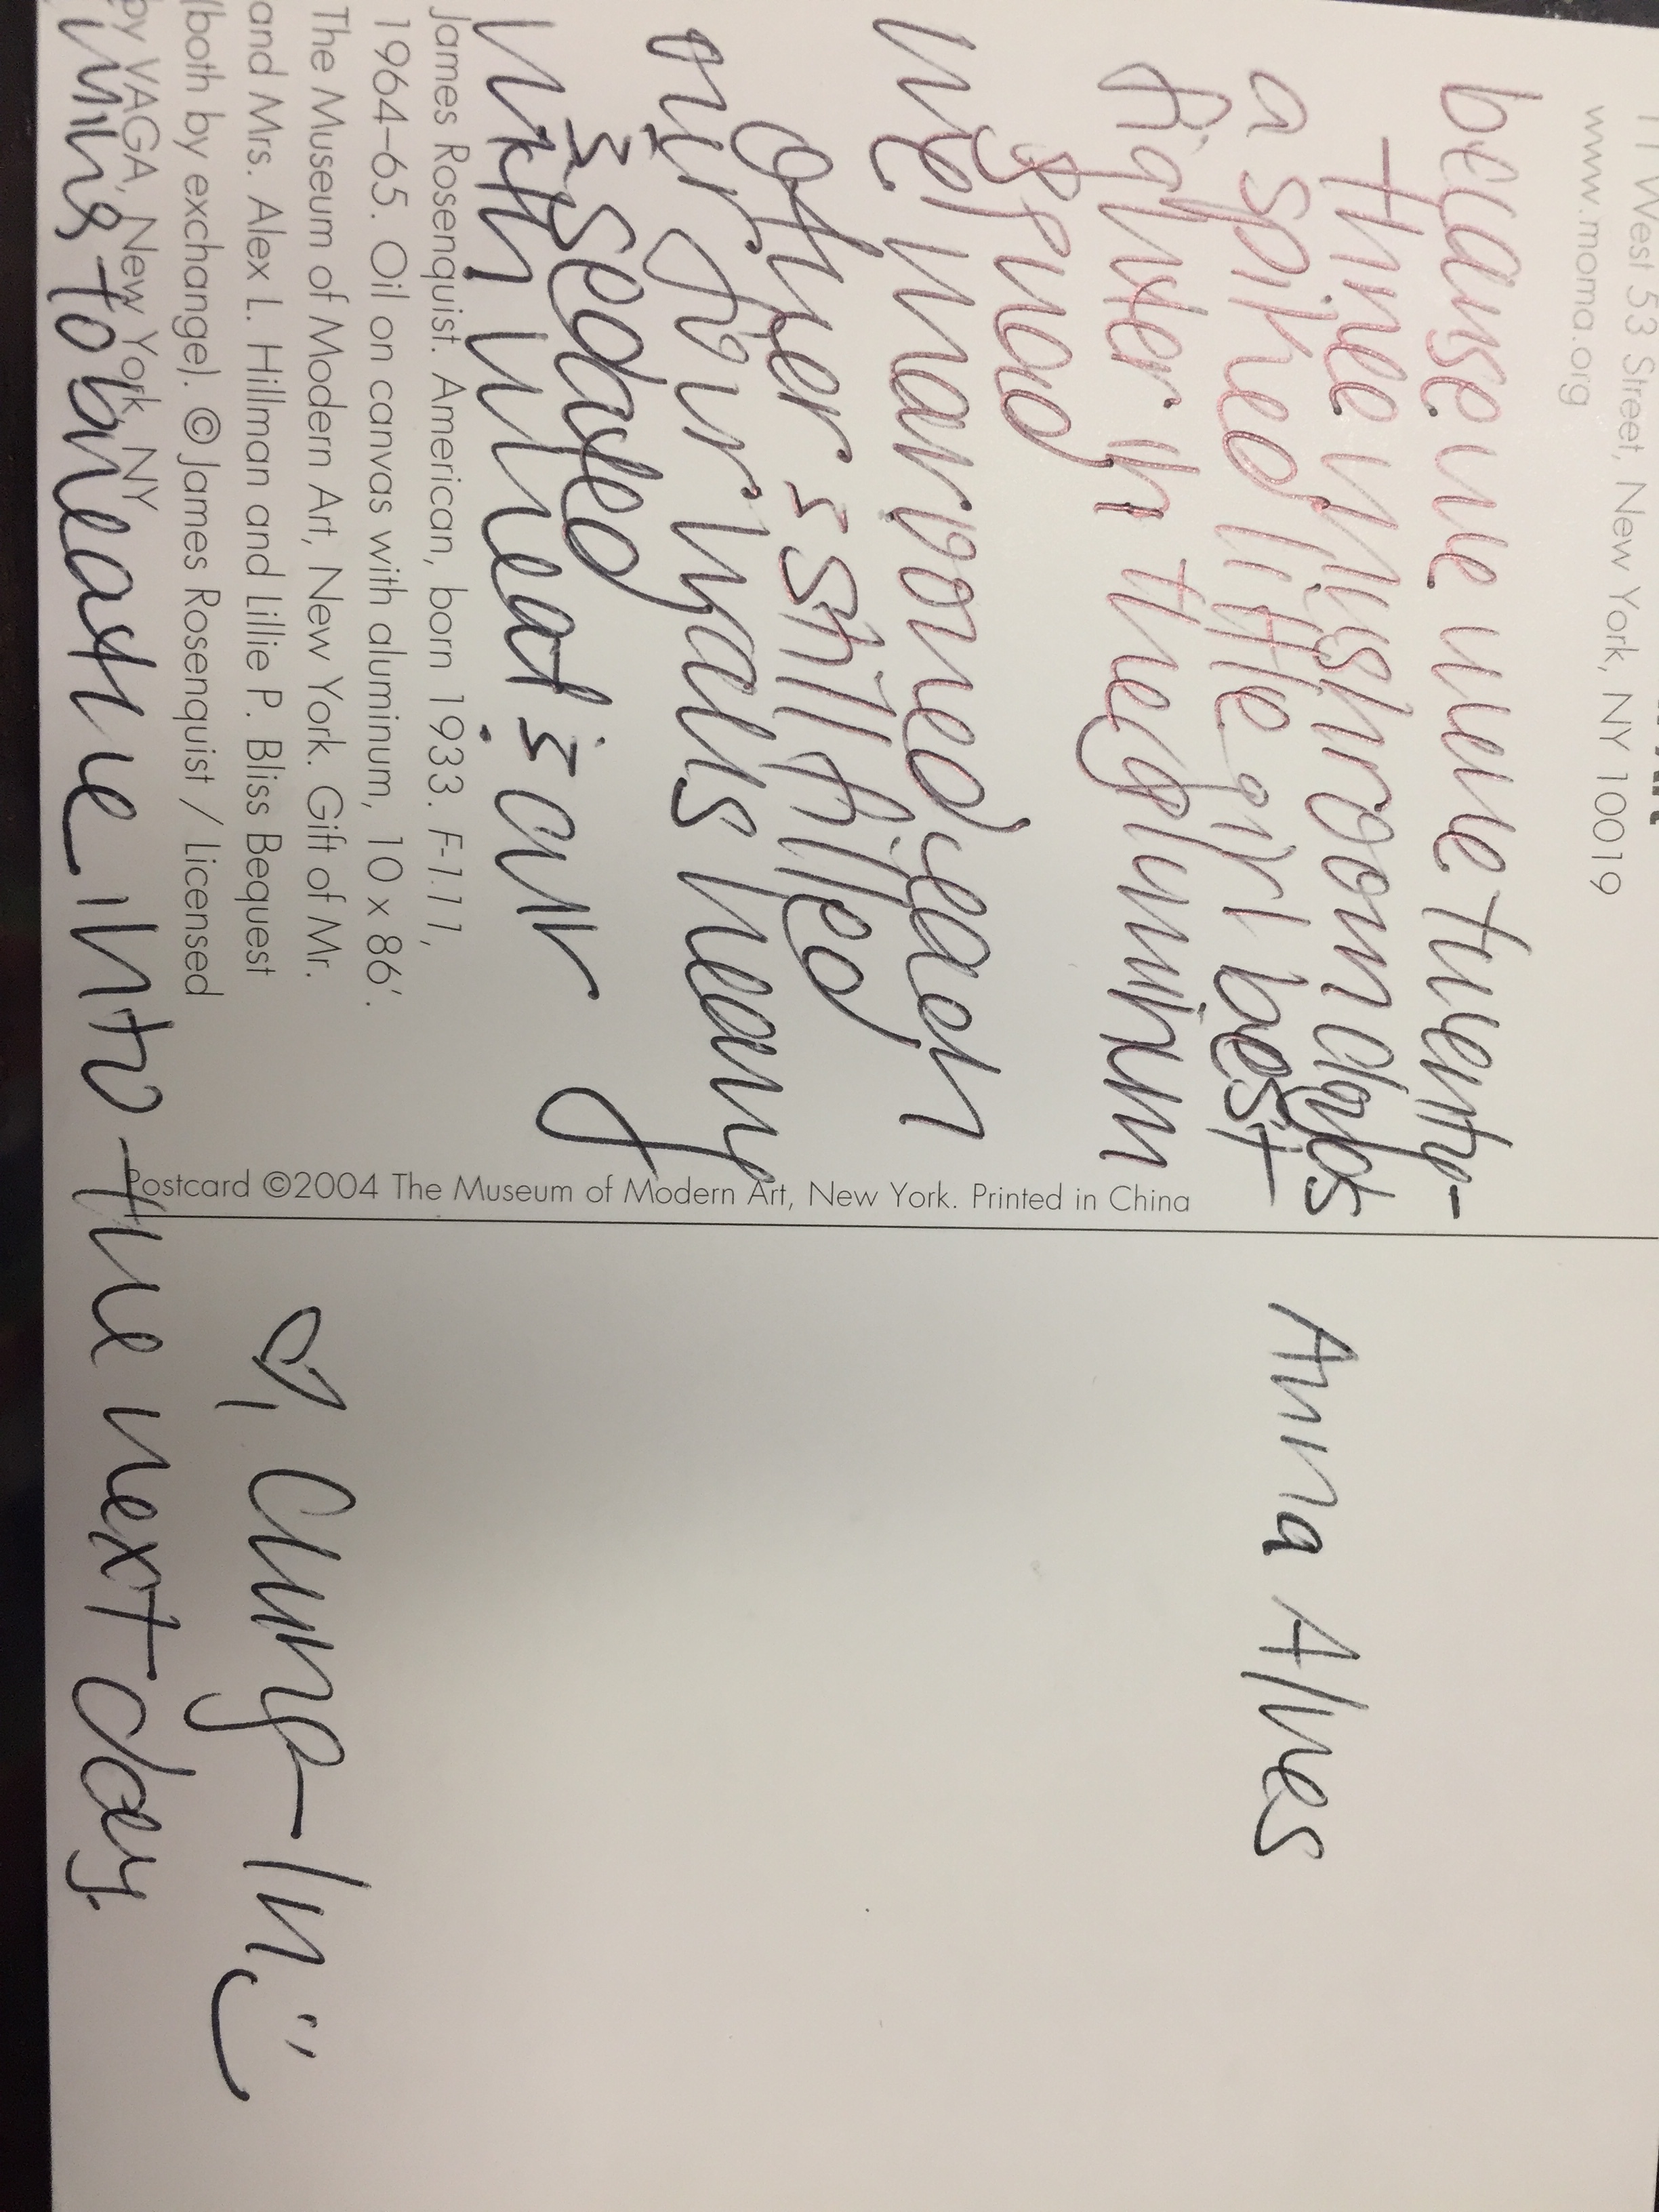 11 West 53 Street, New York, NY 10019
www.moma.org
because we were twenty-
three mushroom clouds
a spiked little girl
fighter in the
we each
other still filled
our four walls heavy
sedated
with what is our
James Rosenquist. American, born 1933. F-111,
1964–65. Oil on canvas with aluminum, 10 x 86'.
The Museum of Modern Art, New York. Gift of Mr.
and Mrs. Alex L. Hillman and Lillie P. Bliss Bequest
(both by exchange). © James Rosenquist / Licensed
by VAGA, New York, NY
to breathe into the next day.
Postcard ©2004 The Museum of Modern Art, New York. Printed in China
Anna Alves
♡, Ching-In